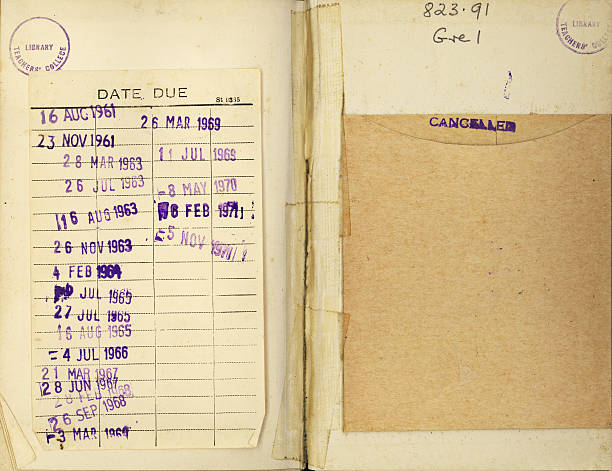 LIBRARY
TEACHERS' COLLEGE
DATE DUE
St 1335
16 AUG 1961
23 NOV 1961
28 MAR 1963
26 JUL 1963
16 AUG 1963
26 NOV 1963
4 FEB 1964
JUL 1965
27 JUL 1965
16 AUG 1965
-4 JUL 1966
21 MAR 1967
28 JUN 1967
28 FEB 1968
26 SEP 1968
-3 MAR 1969
26 MAR 1969
11 JUL 1969
-8 MAY 1970
8 FEB 1971
-5 NOV
823.91
Gre 1
LIBRARY
TEACHERS' COLLEGE
CANCELLED